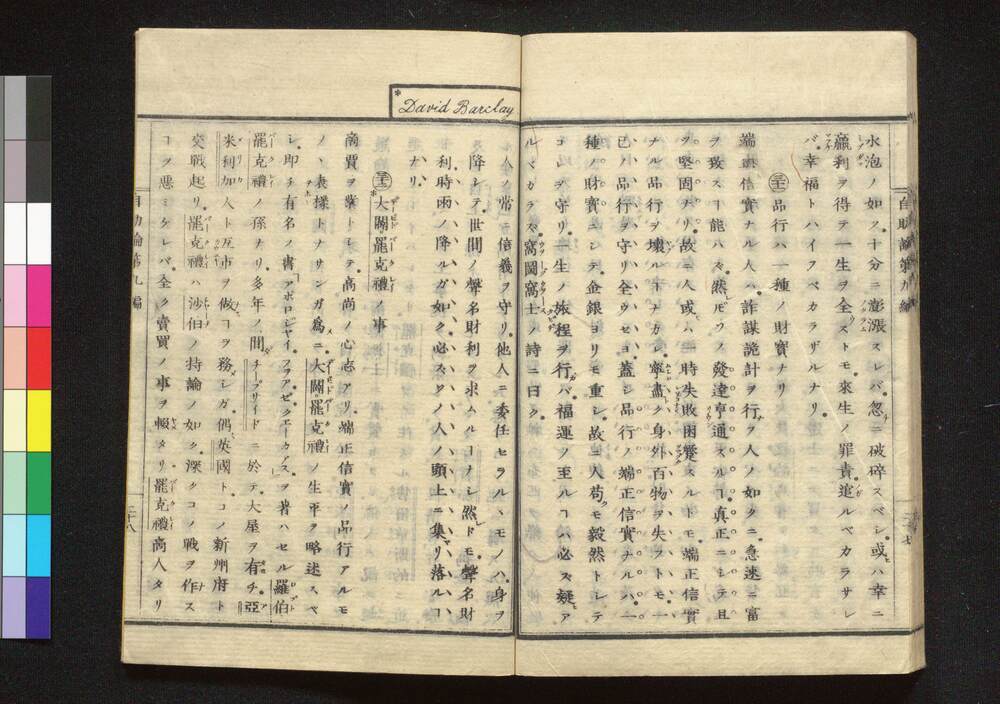 水泡ノ如ク。十分ニ澎漲スレバ。忽ニ破碎スベシ。或ハ幸ニ
贏利ヲ得テ一生ヲ全ストモ。來生ノ罪責遁ルベカラザレ
バ。幸福トハイフベカラザルナリ。
品行ハ一種ノ財寶ナリ
端正信實ナル人ハ。詐謀詭計ヲ行フ人ノ如クニ。急速ニ富
ヲ致スヿ能ハズ。然レドモソノ發達亨通スルヿ。真正ニシテ且
ツ堅固ナリ。故ニ人或ハ一時失敗困躓スルトモ。端正信實
ナル品行ヲ壊ルヿナカレ。寧盡ク身外百物ヲ失フトモ。一
己ノ品行ヲ守リ全ウセヨ。蓋シ品行ノ端正信實ナルハ。一
種ノ財寶ニシテ。金銀ヨリモ重シ。故ニ人苟クモ毅然トシテ
コレヲ守リ。一生ノ旅程ヲ行バ。福運ノ至ルヿハ必ズ疑ア
ルベカラズ。窩闘窩士ノ詩ニ曰ク。
David Barclay
ル人ノ常ニ信義ヲ守リ。他人ニ委任セラルヽモノハ。身ヲ
降シテ世間ノ聲名財利ヲ求ムルヿナシ。然レドモ。聲名財
利。時雨ノ降ルガ如ク。必ズソノ人ノ頭上ニ集リ落ルヿ
ナリ。
大闢羅克禮ノ事
商賈ヲ業トシテ。高尚ノ心志アリ。端正信實ノ品行アルモ
ノヽ表樣トナサンガ爲ニ。大闢羅克禮ノ生平ヲ略述スベ
シ。即チ有名ノ書「アポロジヤイ、フヲア、ゼ、クエーカアス」ヲ著ハセル羅伯
羅克禮ノ孫ナリ。多年ノ間。チープサイドニ於テ大屋ヲ有チ。亞
米利加人ト互市ヲ做ヿヲ務シガ。偶英國ト。コノ新州府ト
交戰起リ。羅克禮ハ沙伯ノ持論ノ如ク。深クコノ戰ヲ作ス
ヿヲ惡ミケレバ。全ク賣買ノ事ヲ輟タリ。羅克禮商人タリ
自助論第九編